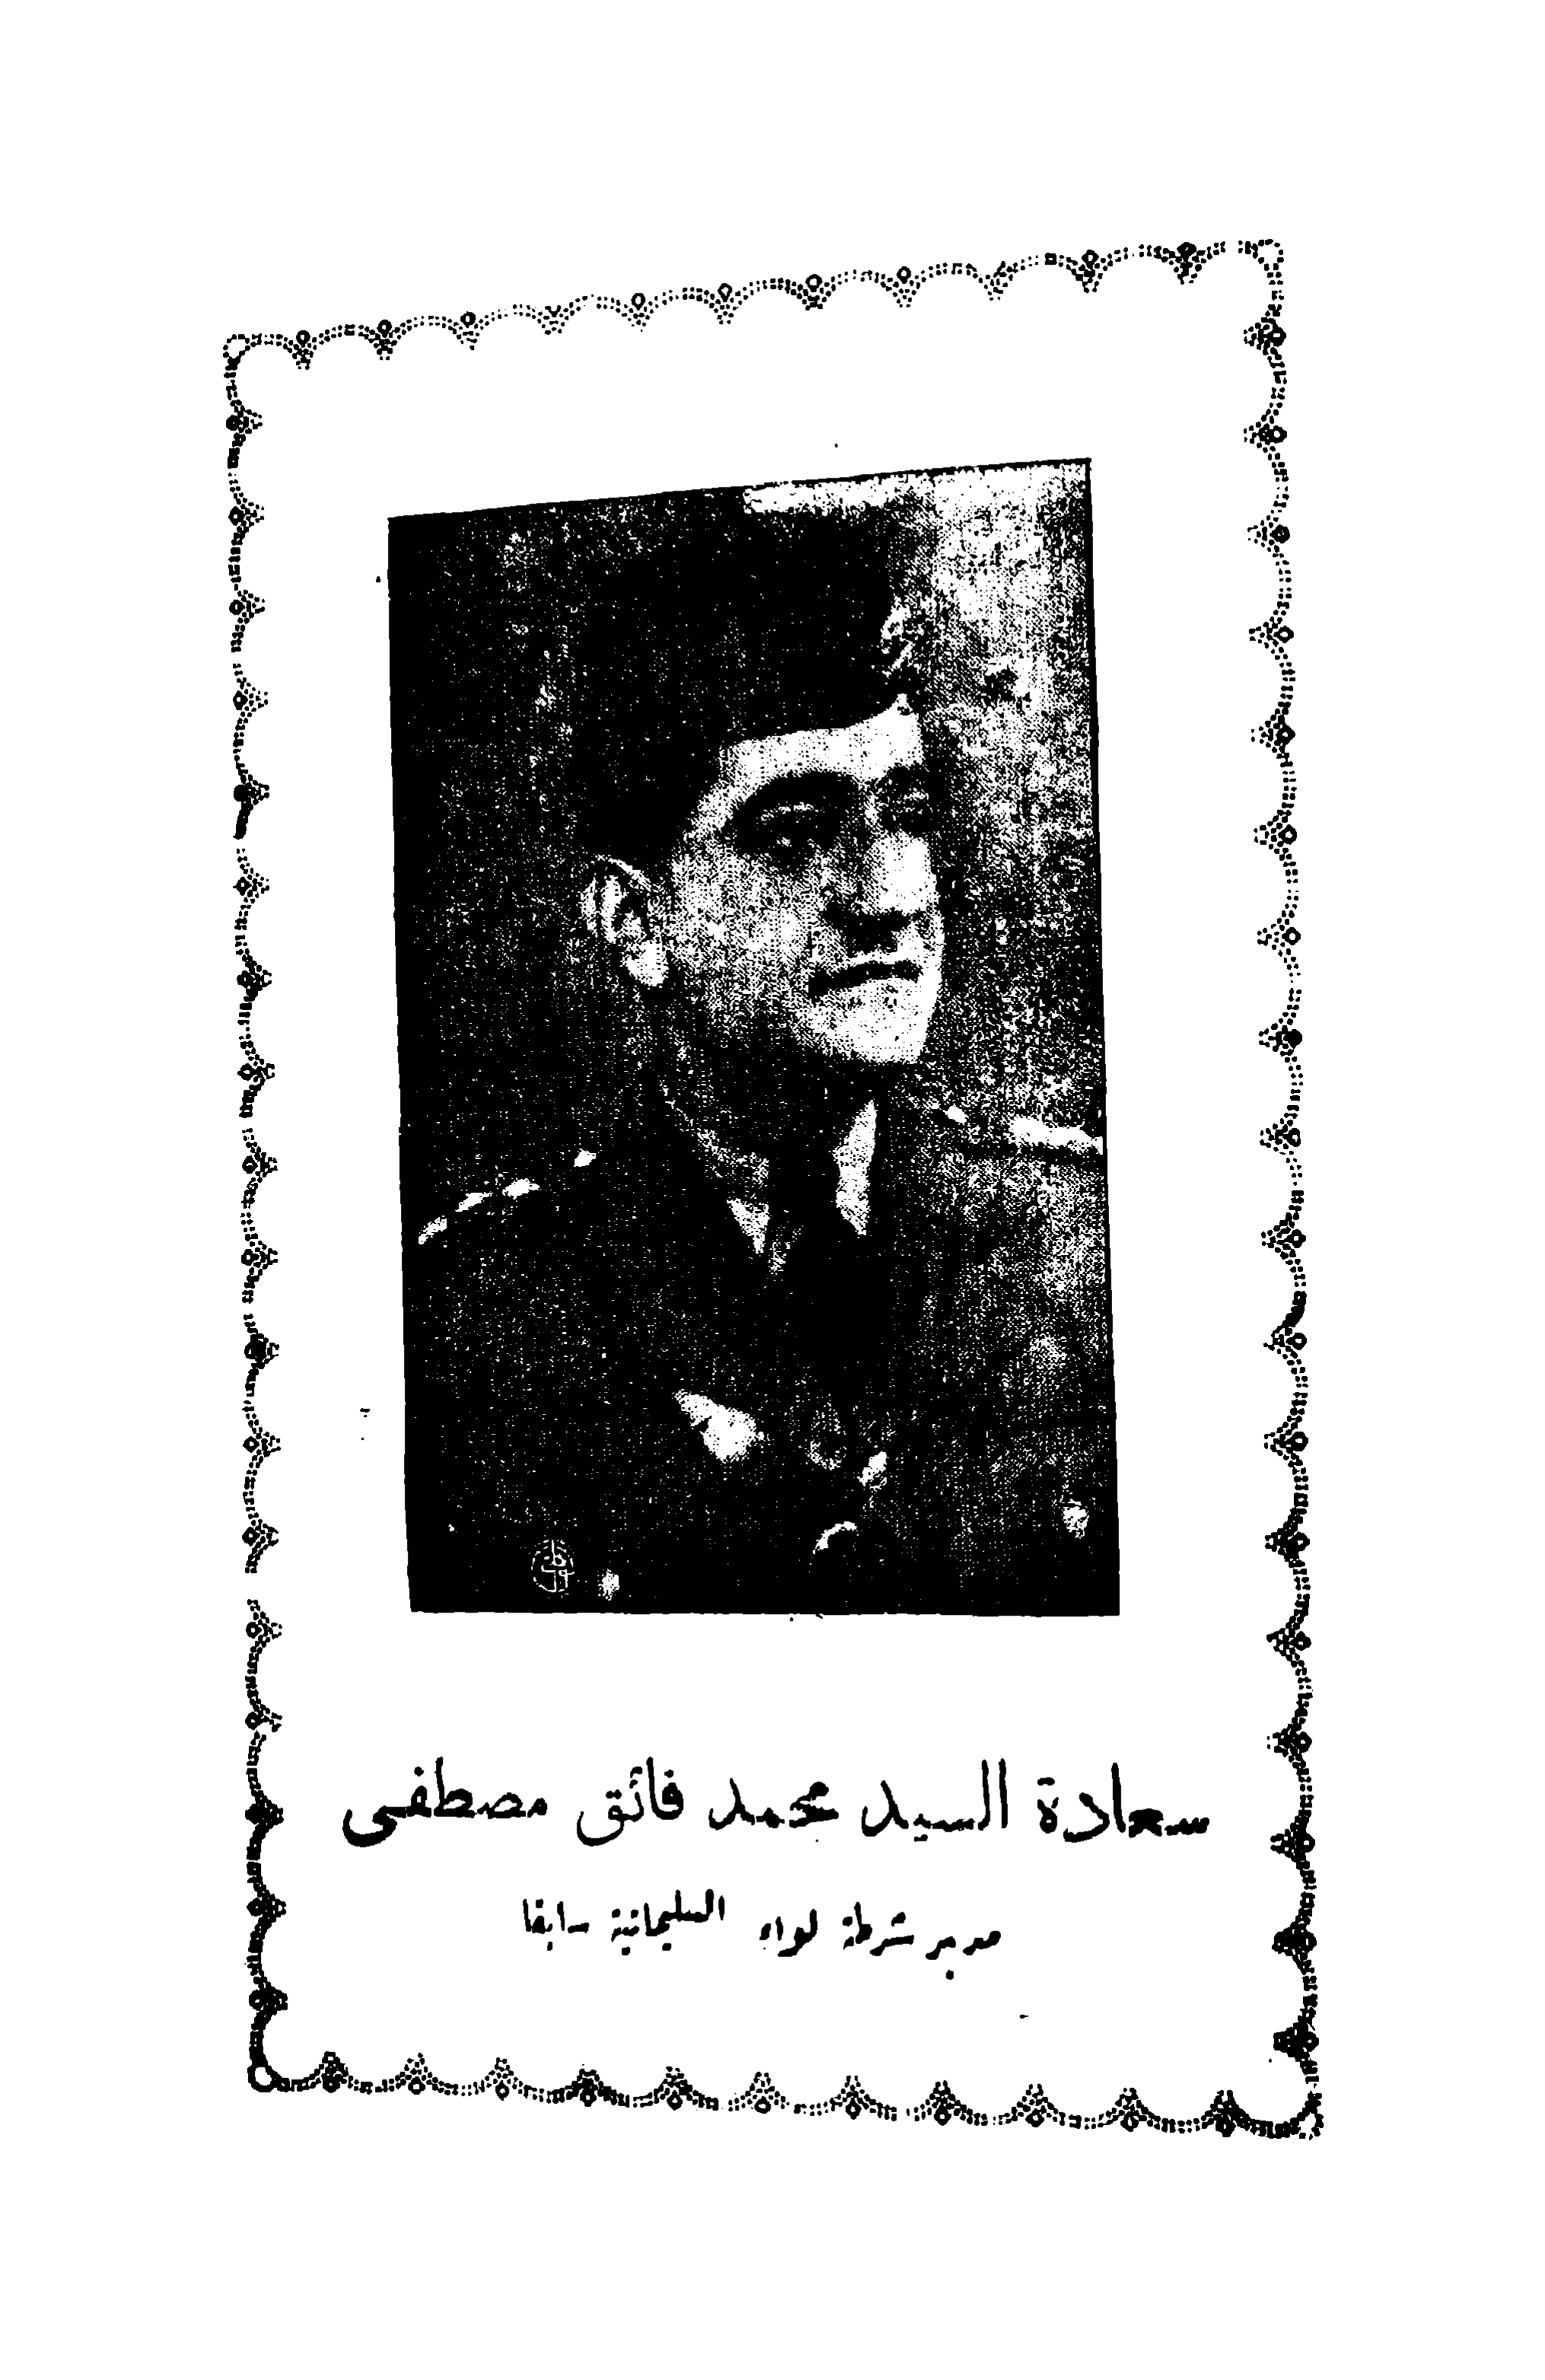 سعادة السيد محمد فائق مصطفى
مدير شرطة لواء السليمانية سابقا